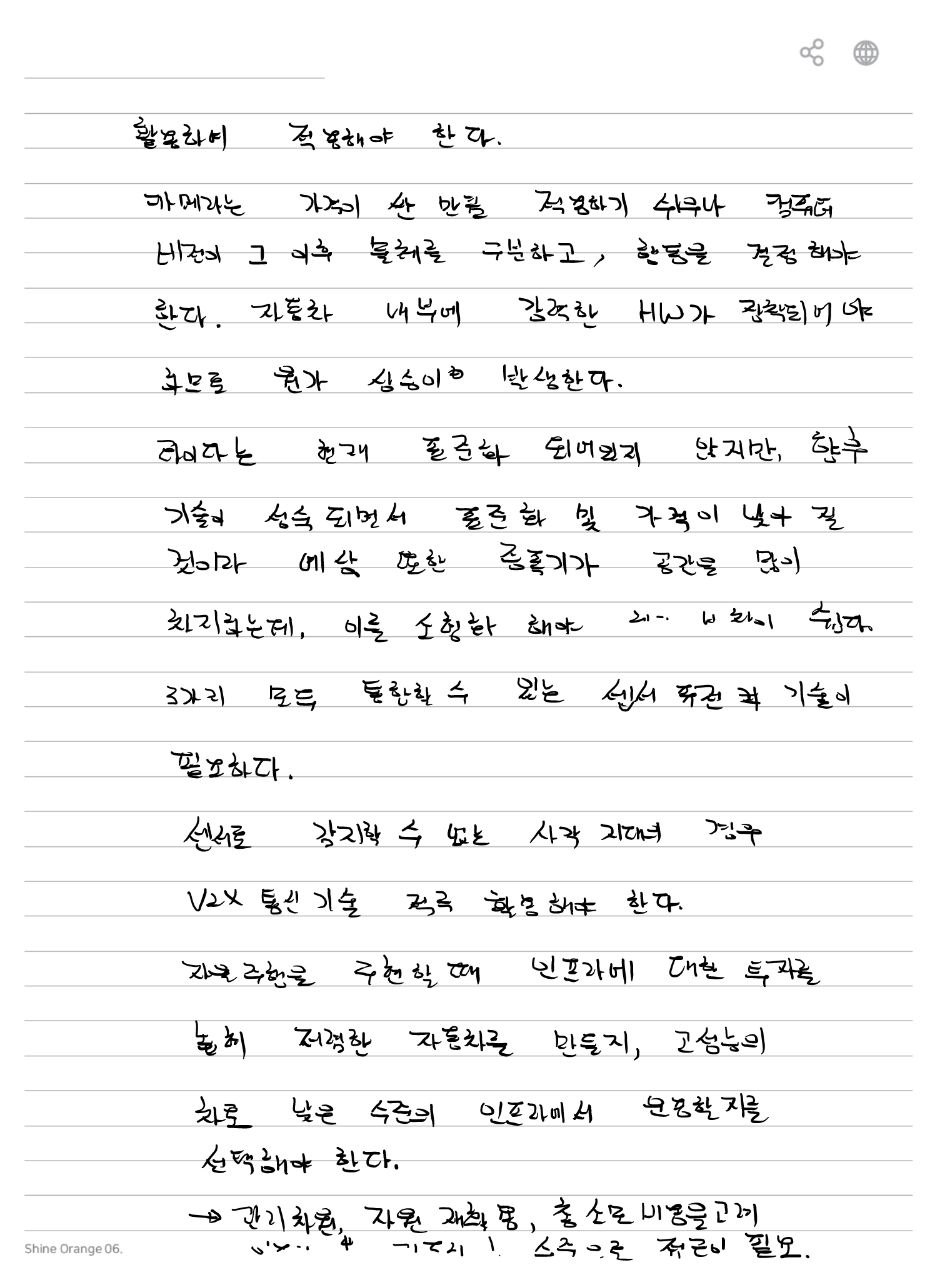 활용하여 적용해야 한다.
카메라는 가격이 싼 만큼 적용하기 쉬우나 컴퓨터
비전이 그 이후 물체를 구분하고, 행동을 결정 해야
한다. 자동차 내부에 강력한 HW가 장착되어 야
하므로 원가 상승이 발생한다.
라이다는 현재 표준화 되어있지 않지만, 향후
기술이 성숙 되면서 표준화 및 가격이 낮아 질
것이라 예상 또한 증폭기가 공간을 많이
차지하는데, 이를 소형화 해야 쉽다.
3가지 모두 통합할 수 있는 센서 퓨전 기술이
필요하다.
센서로 감지할 수 없는 사각 지대의 경우
V2X 통신 기술 적극 활용 해야 한다.
자율 주행을 구현 할 때 인프라에 대한 투자를
늘려 저렴한 자동차를 만들지, 고성능의
차로 낮은 수준의 인프라에서 운용할 지를
선택해야 한다.
→ 관리 차원, 자원 재활용, 총 소모 비용을 고려
수준으로 접근이 필요.
Shine Orange 06.